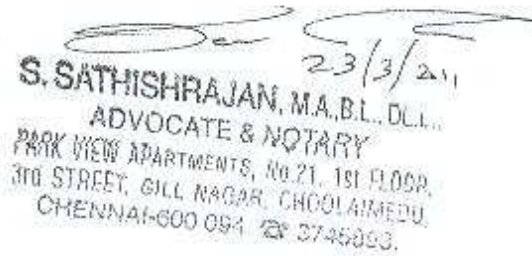 23/3/2011
S. SATHISHRAJAN, M.A.,B.L., DL.L.,
ADVOCATE & NOTARY
PARK VIEW APARTMENTS, No.21, 1St FLOOR,
3rd STREET, GILL NAGAR, CHOOLAIMEDU,
CHENNAI-600 094 ☎